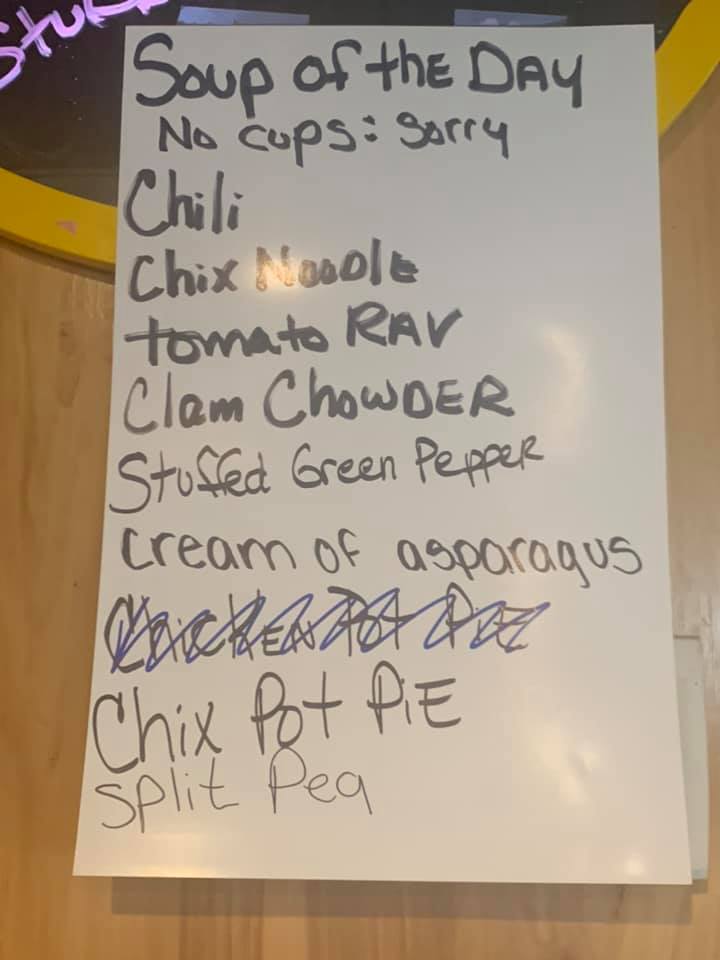 Soup of the DAY
No cups: Sorry
Chili
Chix NooDlE
tomato RAV
Clam ChowDER
Stuffed Green PeppeR
cream of asparagus
ChicKEN Pot PiE
Chix Pot PiE
split Pea